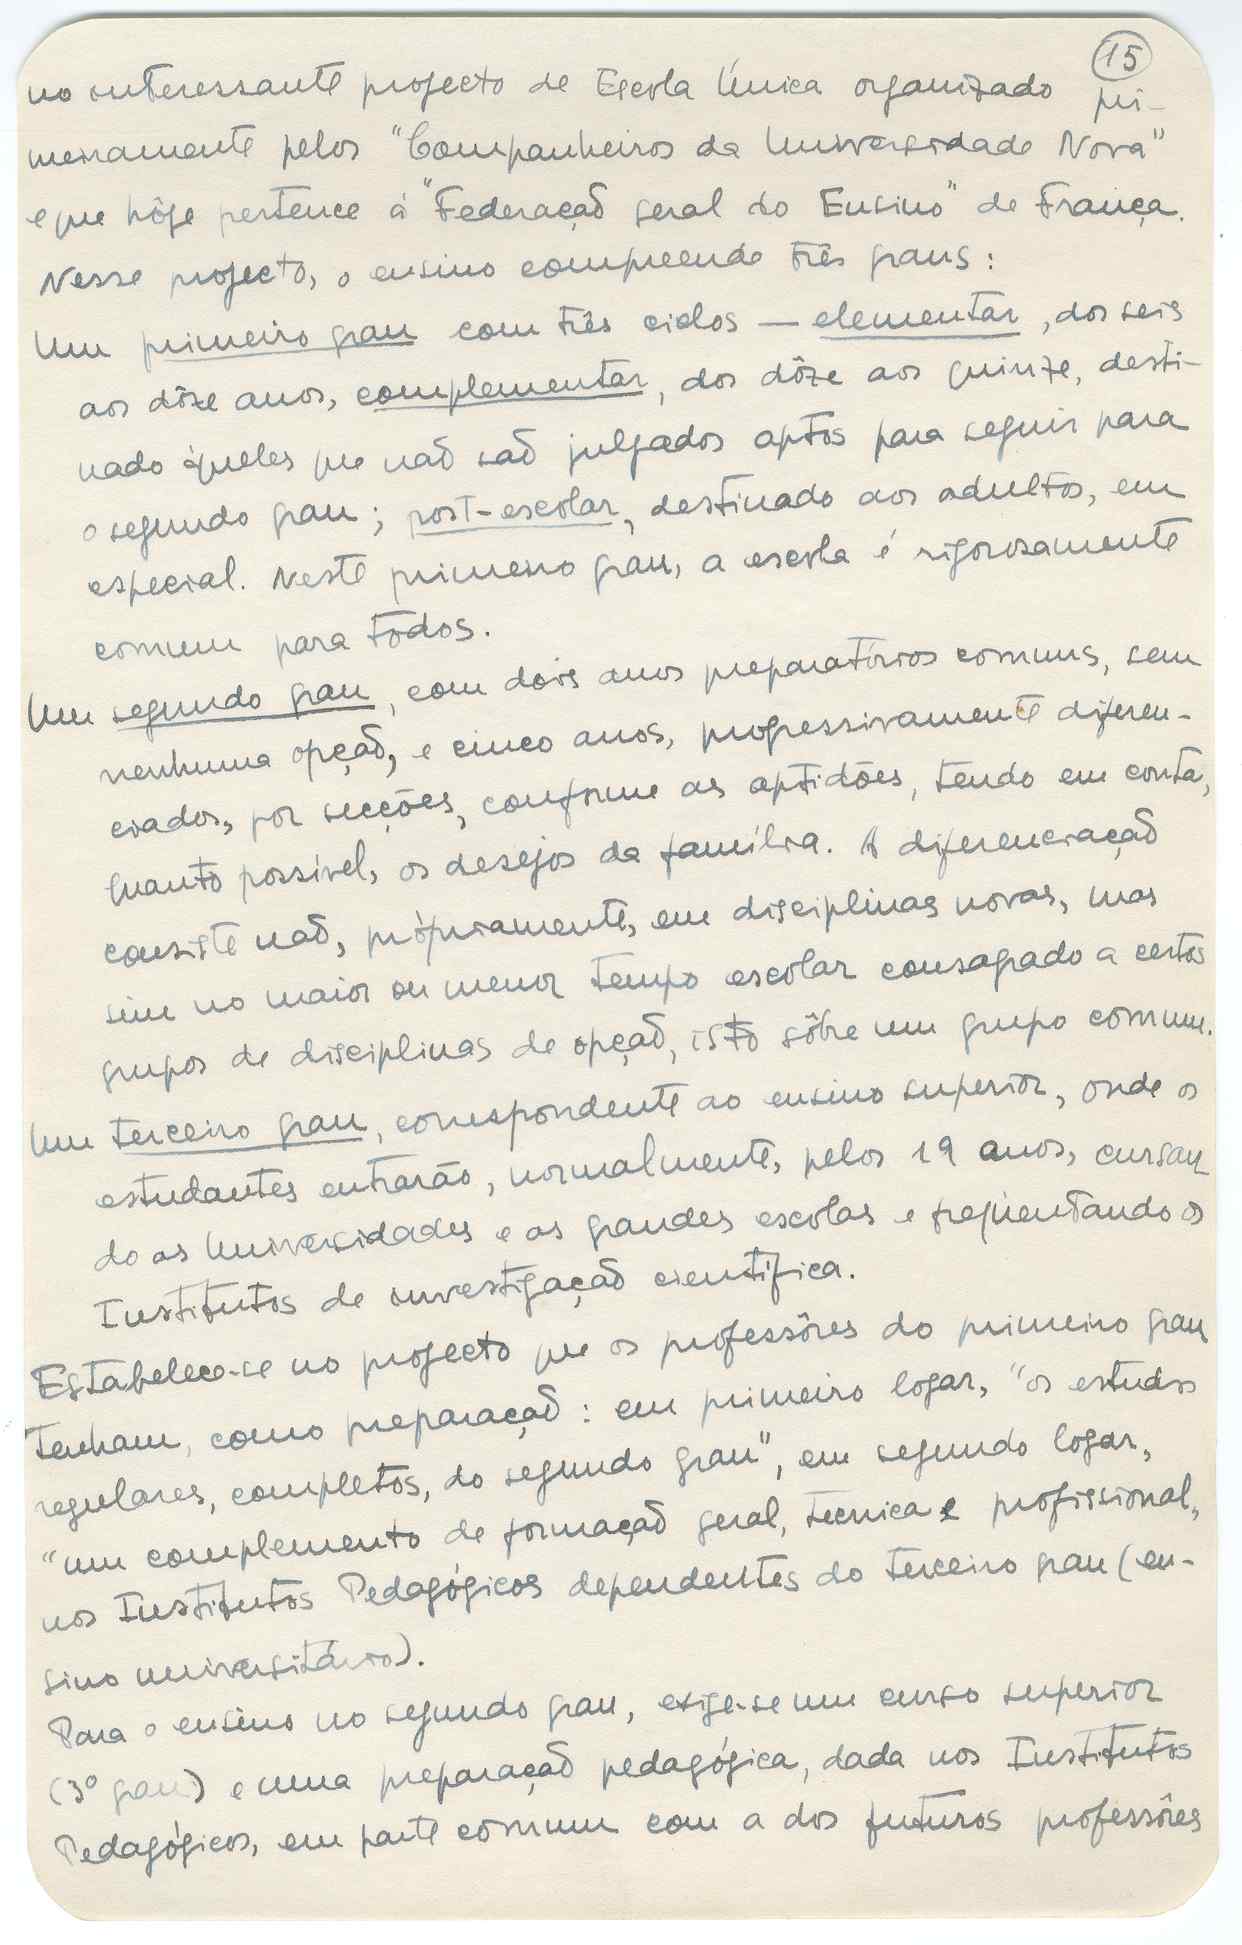 15
no interessante projecto de Escola Única organizado pri-
meiramente pelos "Companheiros da Universidade Nova"
e que hôje pertence á "Federação geral do Ensino" de França.
Nesse projecto, o ensino compreende três graus:
Um primeiro grau com três ciclos — elementar, dos seis
aos dôze anos, complementar, dos dôze aos quinze, desti-
nado àqueles que não são julgados aptos para seguir para
o segundo grau; post-escolar, destinado aos adultos, em
especial. Neste primeiro grau, a escola é rigorosamente
comum para todos.
Um segundo grau, com dois anos preparatórios comuns, sem
nenhuma opção, e cinco anos, progressivamente diferen-
ciados, por secções, conforme as aptidões, tendo em conta,
quanto possível, os desejos da família. A diferenciação
consiste não, própriamente, em disciplinas novas, mas
sim no maior ou menor tempo escolar consagrado a certos
grupos de disciplinas de opção, isto sôbre um grupo comum.
Um terceiro grau, correspondente ao ensino superior, onde os
estudantes entrarão, normalmente, pelos 19 anos, cursan
do as Universidades e as grandes escolas e freqüentando os
Institutos de investigação científica.
Estabelece-se no projecto que os professôres do primeiro grau
tenham, como preparação: em primeiro logar, "os estudos
regulares, completos, do segundo grau", em segundo logar,
"um complemento de formação geral, tecnica e profissional,
nos Institutos Pedagógicos dependentes do terceiro grau (en-
sino universitário).
Para o ensino no segundo grau, exige-se um curso superior
(3º grau) e uma preparação pedagógica, dada nos Institutos
Pedagógicos, em parte comum com a dos futuros professôres